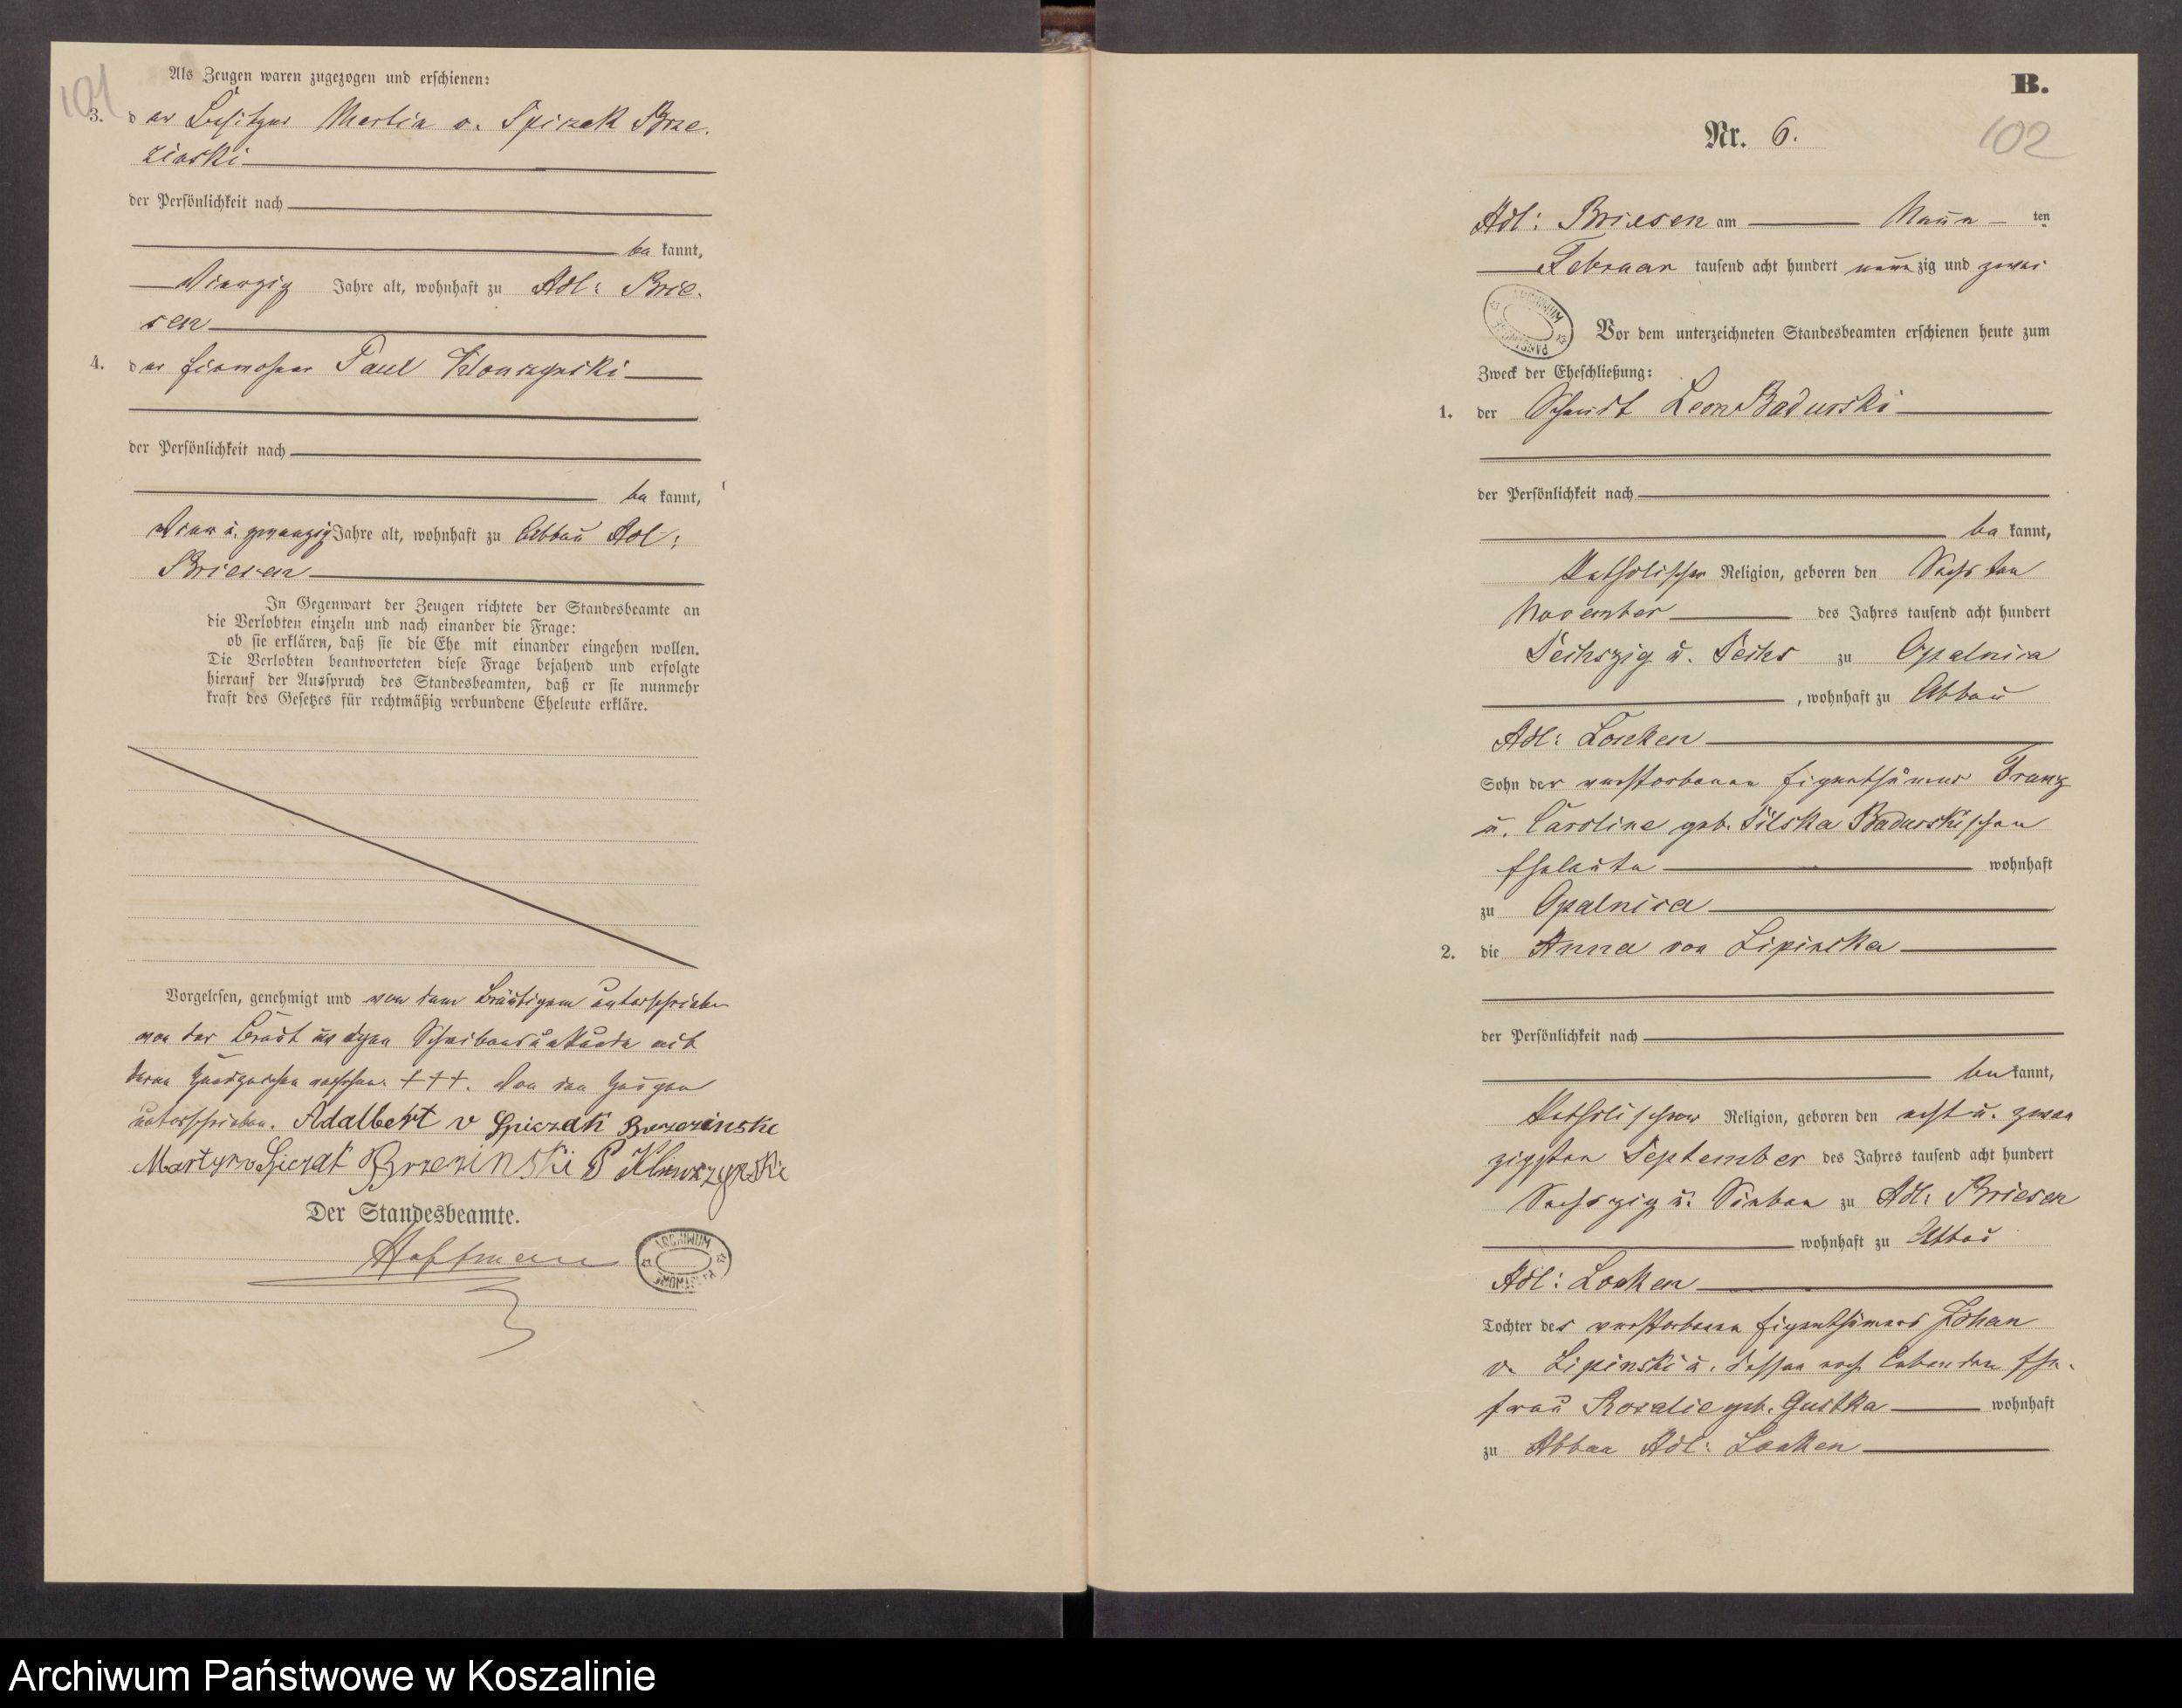 101
Als Zeugen waren zugezogen und erschienen:
3. der Besitzer Martin v. Spiczak Brze-
zinski
der Persönlichkeit nach
be kannt,
vierzig Jahre alt, wohnhaft zu Adl: Brie-
sen
4. der Einwohner Paul Klonszynski
der Persönlichkeit nach
be kannt,
vier u. zwanzig Jahre alt, wohnhaft zu Abbau Adl:
Briesen
In Gegenwart der Zeugen richtete der Standesbeamte an
die Verlobten einzeln und nach einander die Frage:
ob sie erklären, daß sie die Ehe mit einander eingehen wollen.
Die Verlobten beantworteten diese Frage bejahend und erfolgte
hierauf der Ausspruch des Standesbeamten, daß er sie nunmehr
kraft des Gesetzes für rechtmäßig verbundene Eheleute erkläre.
Vorgelesen, genehmigt und von dem Bräutigam unterschrieben
von der Braut wegen Schreibensunkunde mit
ihrem Handzeichen versehen. +++. Von den Zeugen
unterschrieben. Adalbert v Spiczak Brzezinski
Martyn v Spiczak Brzezinski P
Der Standesbeamte.
Hoffmann
ARCHIWUM
B.
Nr. 6.
102
Adl: Briesen am Neun ten
Februar tausend acht hundert neun zig und zwei
ARCHIWUM
Vor dem unterzeichneten Standesbeamten erschienen heute zum
Zweck der Eheschließung:
1. der Leon Badurski
der Persönlichkeit nach
be kannt,
katholischer Religion, geboren den Sechsten
November des Jahres tausend acht hundert
Sechszig u. Sechs zu Opalnica
, wohnhaft zu Abbau
Adl: Lonken
Sohn der verstorbenen Eigenthümer Franz
u. Caroline geb. Silska Badurskischen
Eheleute wohnhaft
zu Opalnica
2. die Anna von Lipinska
der Persönlichkeit nach
be kannt,
katholischer Religion, geboren den acht u. zwan
zigsten September des Jahres tausend acht hundert
Sechszig u. Sieben zu Adl: Briesen
wohnhaft zu Abbau
Adl: Lonken
Tochter des verstorbenen Eigenthümers Johan
v. Lipinski u. dessen noch lebenden Ehe-
frau Rosalie geb. Gustka wohnhaft
zu Abbau Adl: Lonken
Archiwum Państwowe w Koszalinie